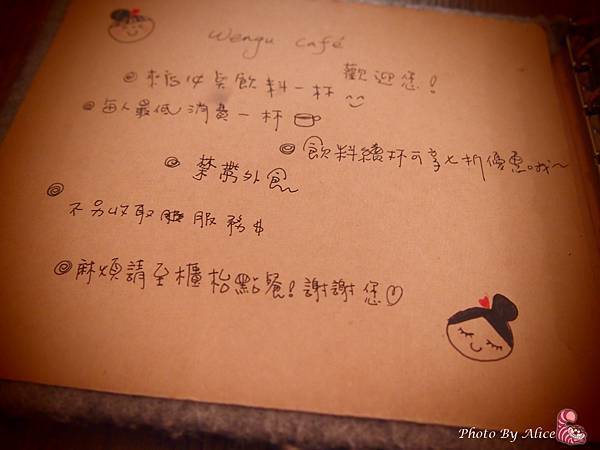 Wengu café
歡迎您!
◎ 來店必點飲料一杯
◎ 每人最低消費一杯
◎ 飲料續杯可享七折優惠哦～
◎ 禁帶外食
◎ 不另收取服務$
◎ 麻煩請至櫃枱點餐!謝謝您♡
Photo By Alice